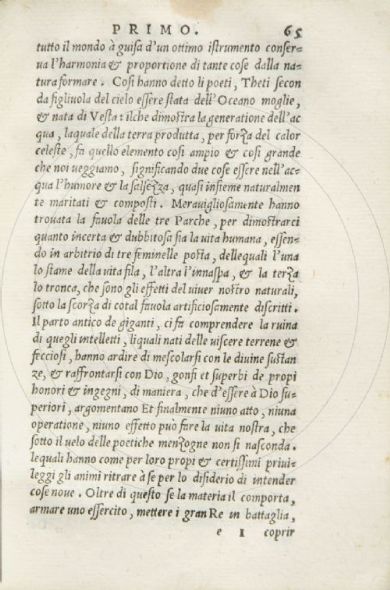 PRIMO. 65
tutto il mondo à guisa d'un ottimo istrumento conser-
ua l'harmonia & proportione di tante cose dalla na-
tura formare. Cosi hanno detto li poeti, Theti secon
da figliuola del cielo essere stata dell'Oceano moglie,
& nata di Vesta: ilche dimostra la generatione dell'ac
qua, laquale della terra produtta, per forza del calor
celeste, fa quello elemento cosi ampio & cosi grande
che noi ueggiamo, significando due cose essere nell'ac-
qua l'humore & la salsezza, quasi insieme naturalmen
te maritati & composti. Merauigliosamente hanno
trouata la fauola delle tre Parche, per dimostrarci
quanto incerta & dubbitosa sia la uita humana, essen-
do in arbitrio di tre feminelle posta, dellequali l'una
lo stame della uita fila, l'altra l'innaspa, & la terza
lo tronca, che sono gli effetti del uiuer nostro naturali,
sotto la scorza di cotal fauola artificiosamente discritti.
Il parto antico de giganti, ci fa comprendere la ruina
di quegli intelletti, liquali nati delle uiscere terrene &
fecciosi, hanno ardire di mescolarsi con le diuine sustan
ze, & raffrontarsi con Dio, gonfi et superbi de propi
honori & ingegni, di maniera, che d'essere à Dio su-
periori, argomentano Et finalmente niuno atto, niuna
operatione, niuno effetto può fare la uita nostra, che
sotto il uelo delle poetiche menzogne non si nasconda.
lequali hanno come per loro propi & certissimi priui-
leggi gli animi ritrare à se per lo disiderio di intender
cose noue. Oltre di questo se la materia il comporta,
armare uno essercito, mettere i gran Re in battaglia,
e I coprir